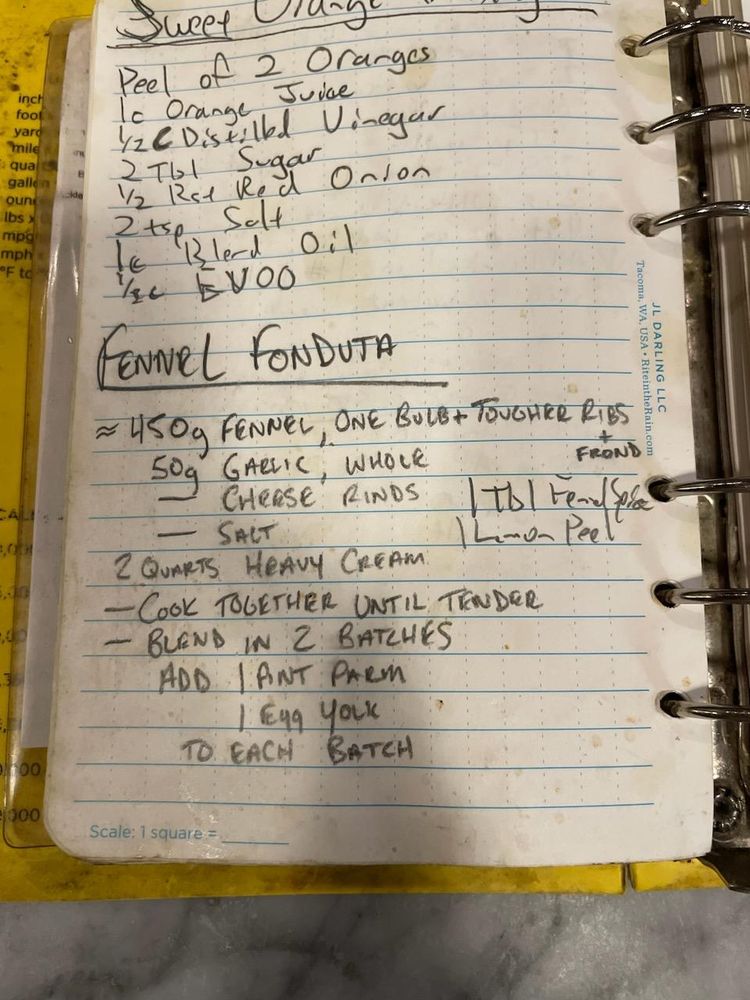 Sweet Orange
Peel of 2 Oranges
1c Orange Juice
1/2 C Distilled Vinegar
2 Tbl Sugar
1/2 Rst Red Onion
2 tsp Salt
1c Blend Oil
EVOO
FENNEL FONDUTA
≈ 450g FENNEL, ONE BULB + TOUGHER RIBS
+ FROND
50g GARLIC, WHOLE
— CHEESE RINDS
1 Tbl Fennel Spice
— SALT
1 Lemon Peel
2 QUARTS HEAVY CREAM
— COOK TOGETHER UNTIL TENDER
— BLEND IN 2 BATCHES
ADD 1 PINT PARM
1 Egg YOLK
TO EACH BATCH
Scale: 1 square =
JL DARLING LLC
Tacoma, WA, USA • RiteintheRain.com
inch
foot
yard
mile
qua
gallo
oun
lbs x
mpg
mph
°F to